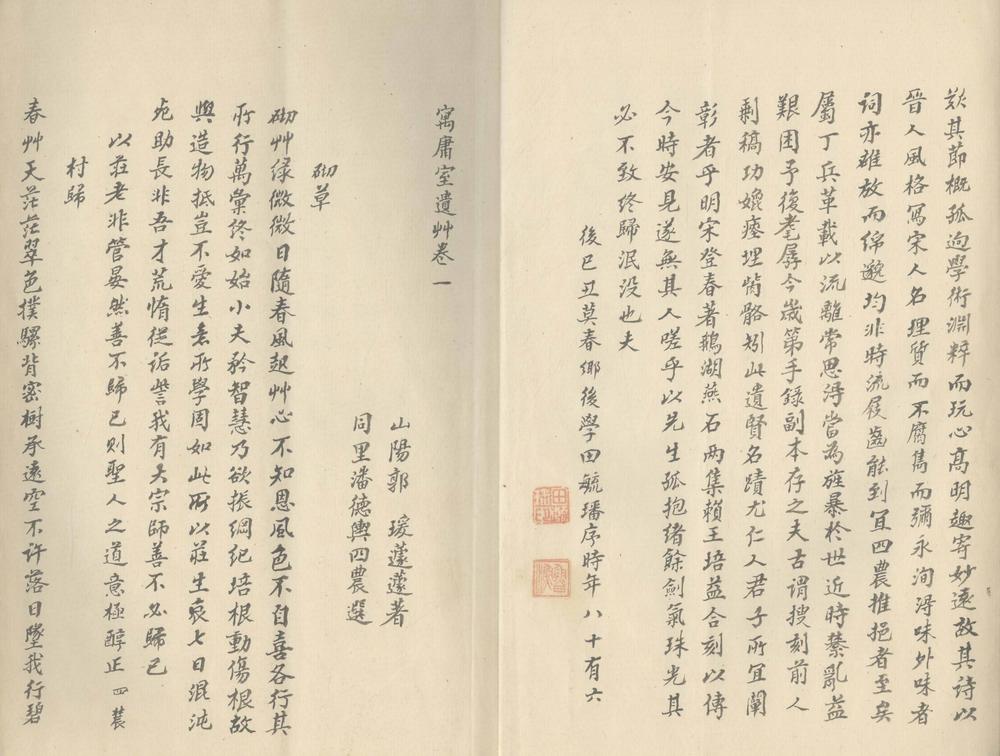 歎其節概孤迥學術淵粹而玩心高明趣寄妙遠故其詩以
晉人風格寫宋人名理質而不腐雋而彌永洵得味外味者
詞亦雖放而綿邈均非時流屐齒能到宜四農推挹者至矣
屬丁兵革載以流離常思得當為旌暴於世近時棼亂益
艱困予復耄孱今歲第手錄副本存之夫古謂搜刻前人
剩稿功媲瘞埋胔骼矧此遺賢名蹟尤仁人君子所宜闡
彰者乎明宋登春著鵝湖燕石兩集賴王培益合刻以傳
今時安見遂無其人嗟乎以先生孤抱緒餘劍氣珠光其
必不致終歸泯没也夫
後己丑莫春鄉後學田毓璠序時年八十有六
寓庸室遺艸卷一
山陽郭瑗蘧蘧著
同里潘德輿四農選
砌草
砌艸緑微微日隨春風起艸心不知恩風色不自喜各行其
所行萬彙終如始小夫矜智慧乃欲振綱紀培根動傷根故
與造物抵豈不愛生意所學固如此所以莊生哀七日混沌
死助長非吾才荒惰從詬訾我有大宗師善不必歸已
以莊老非管晏然善不歸已則聖人之道意極醇正 四農
村歸
春艸天茫茫翠色撲騾背密樹承遠空不許落日墜我行碧